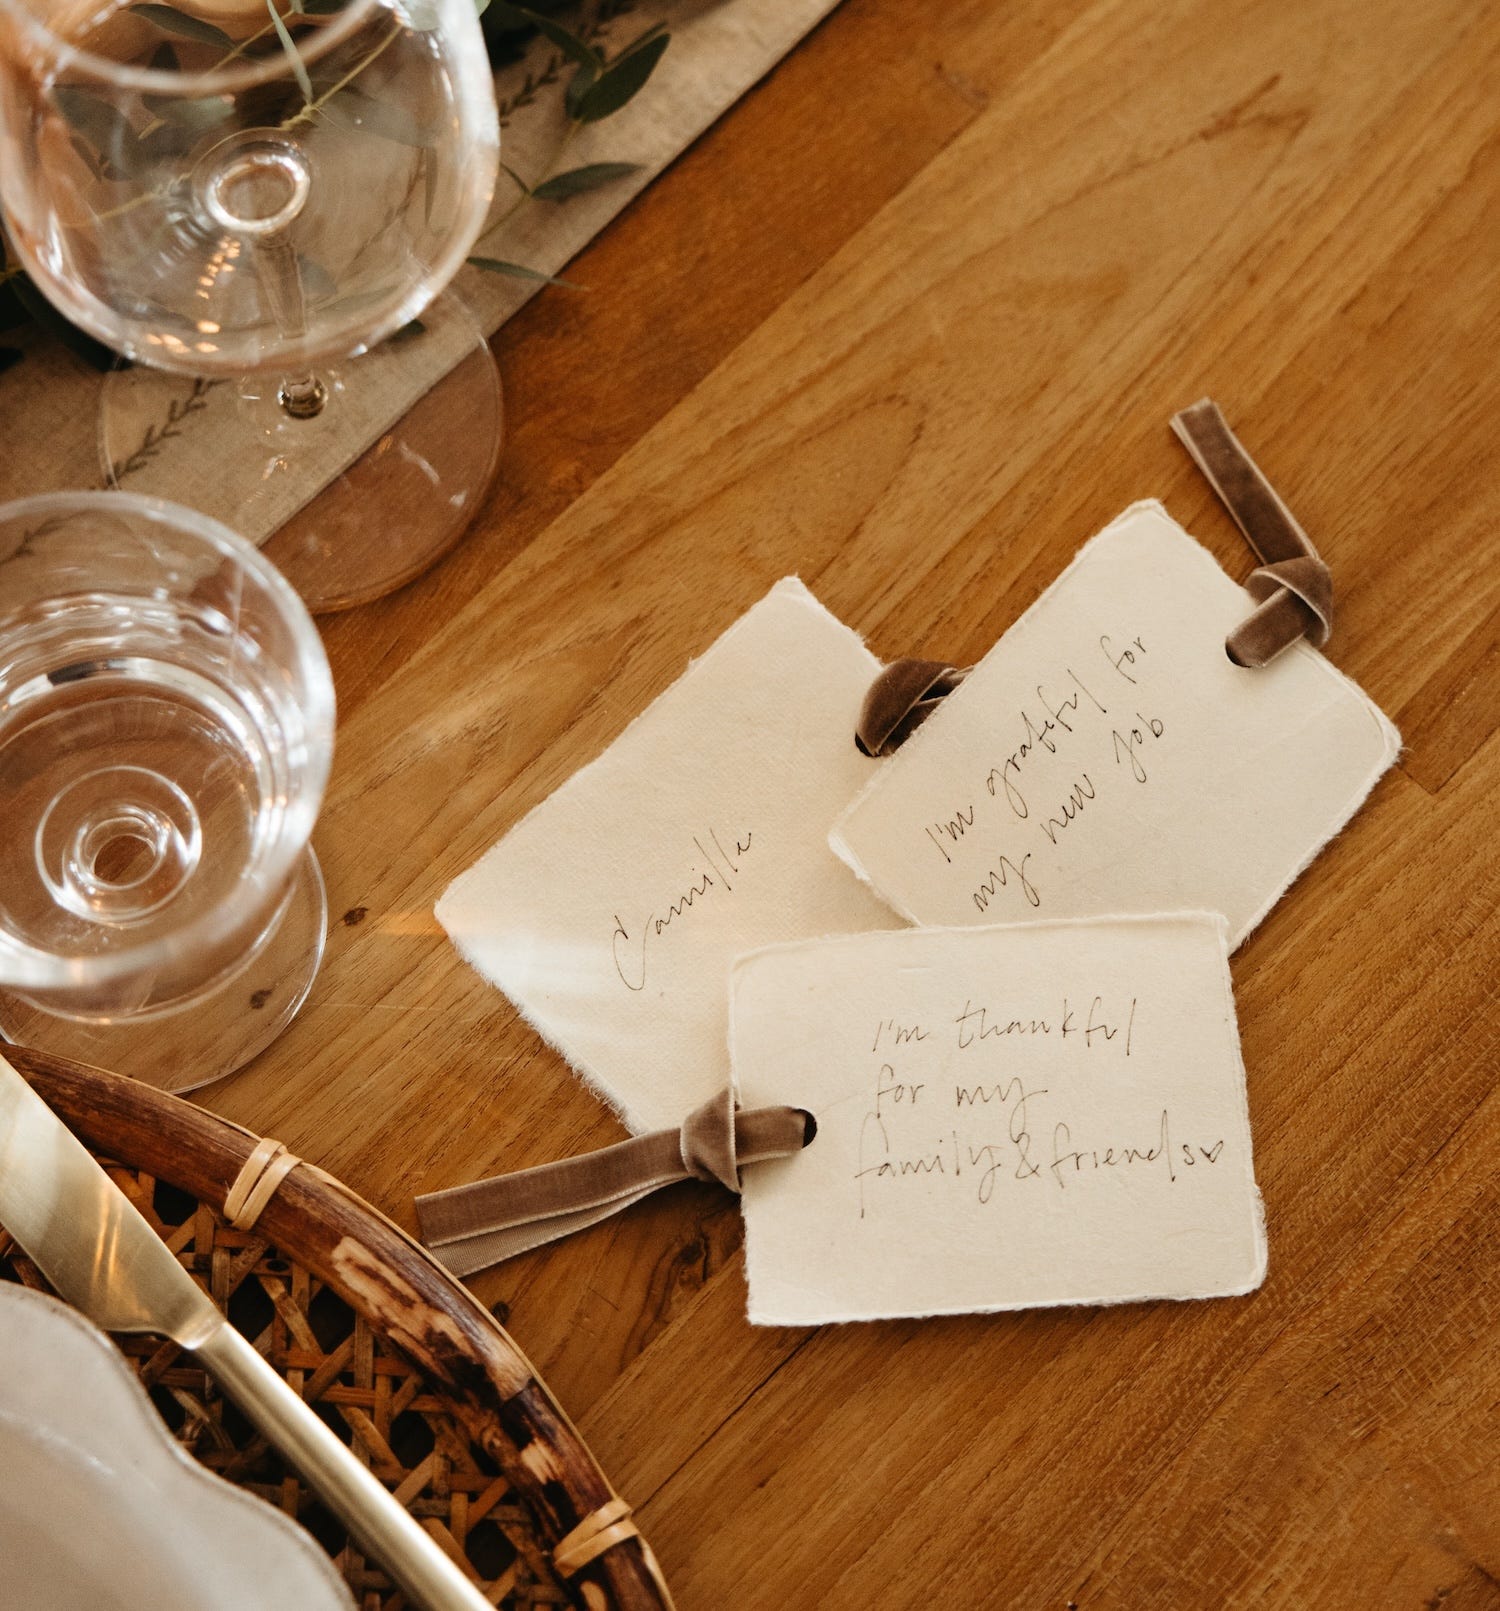 Camille
I'm grateful for
my new job
I'm thankful
for my
family & friends♥